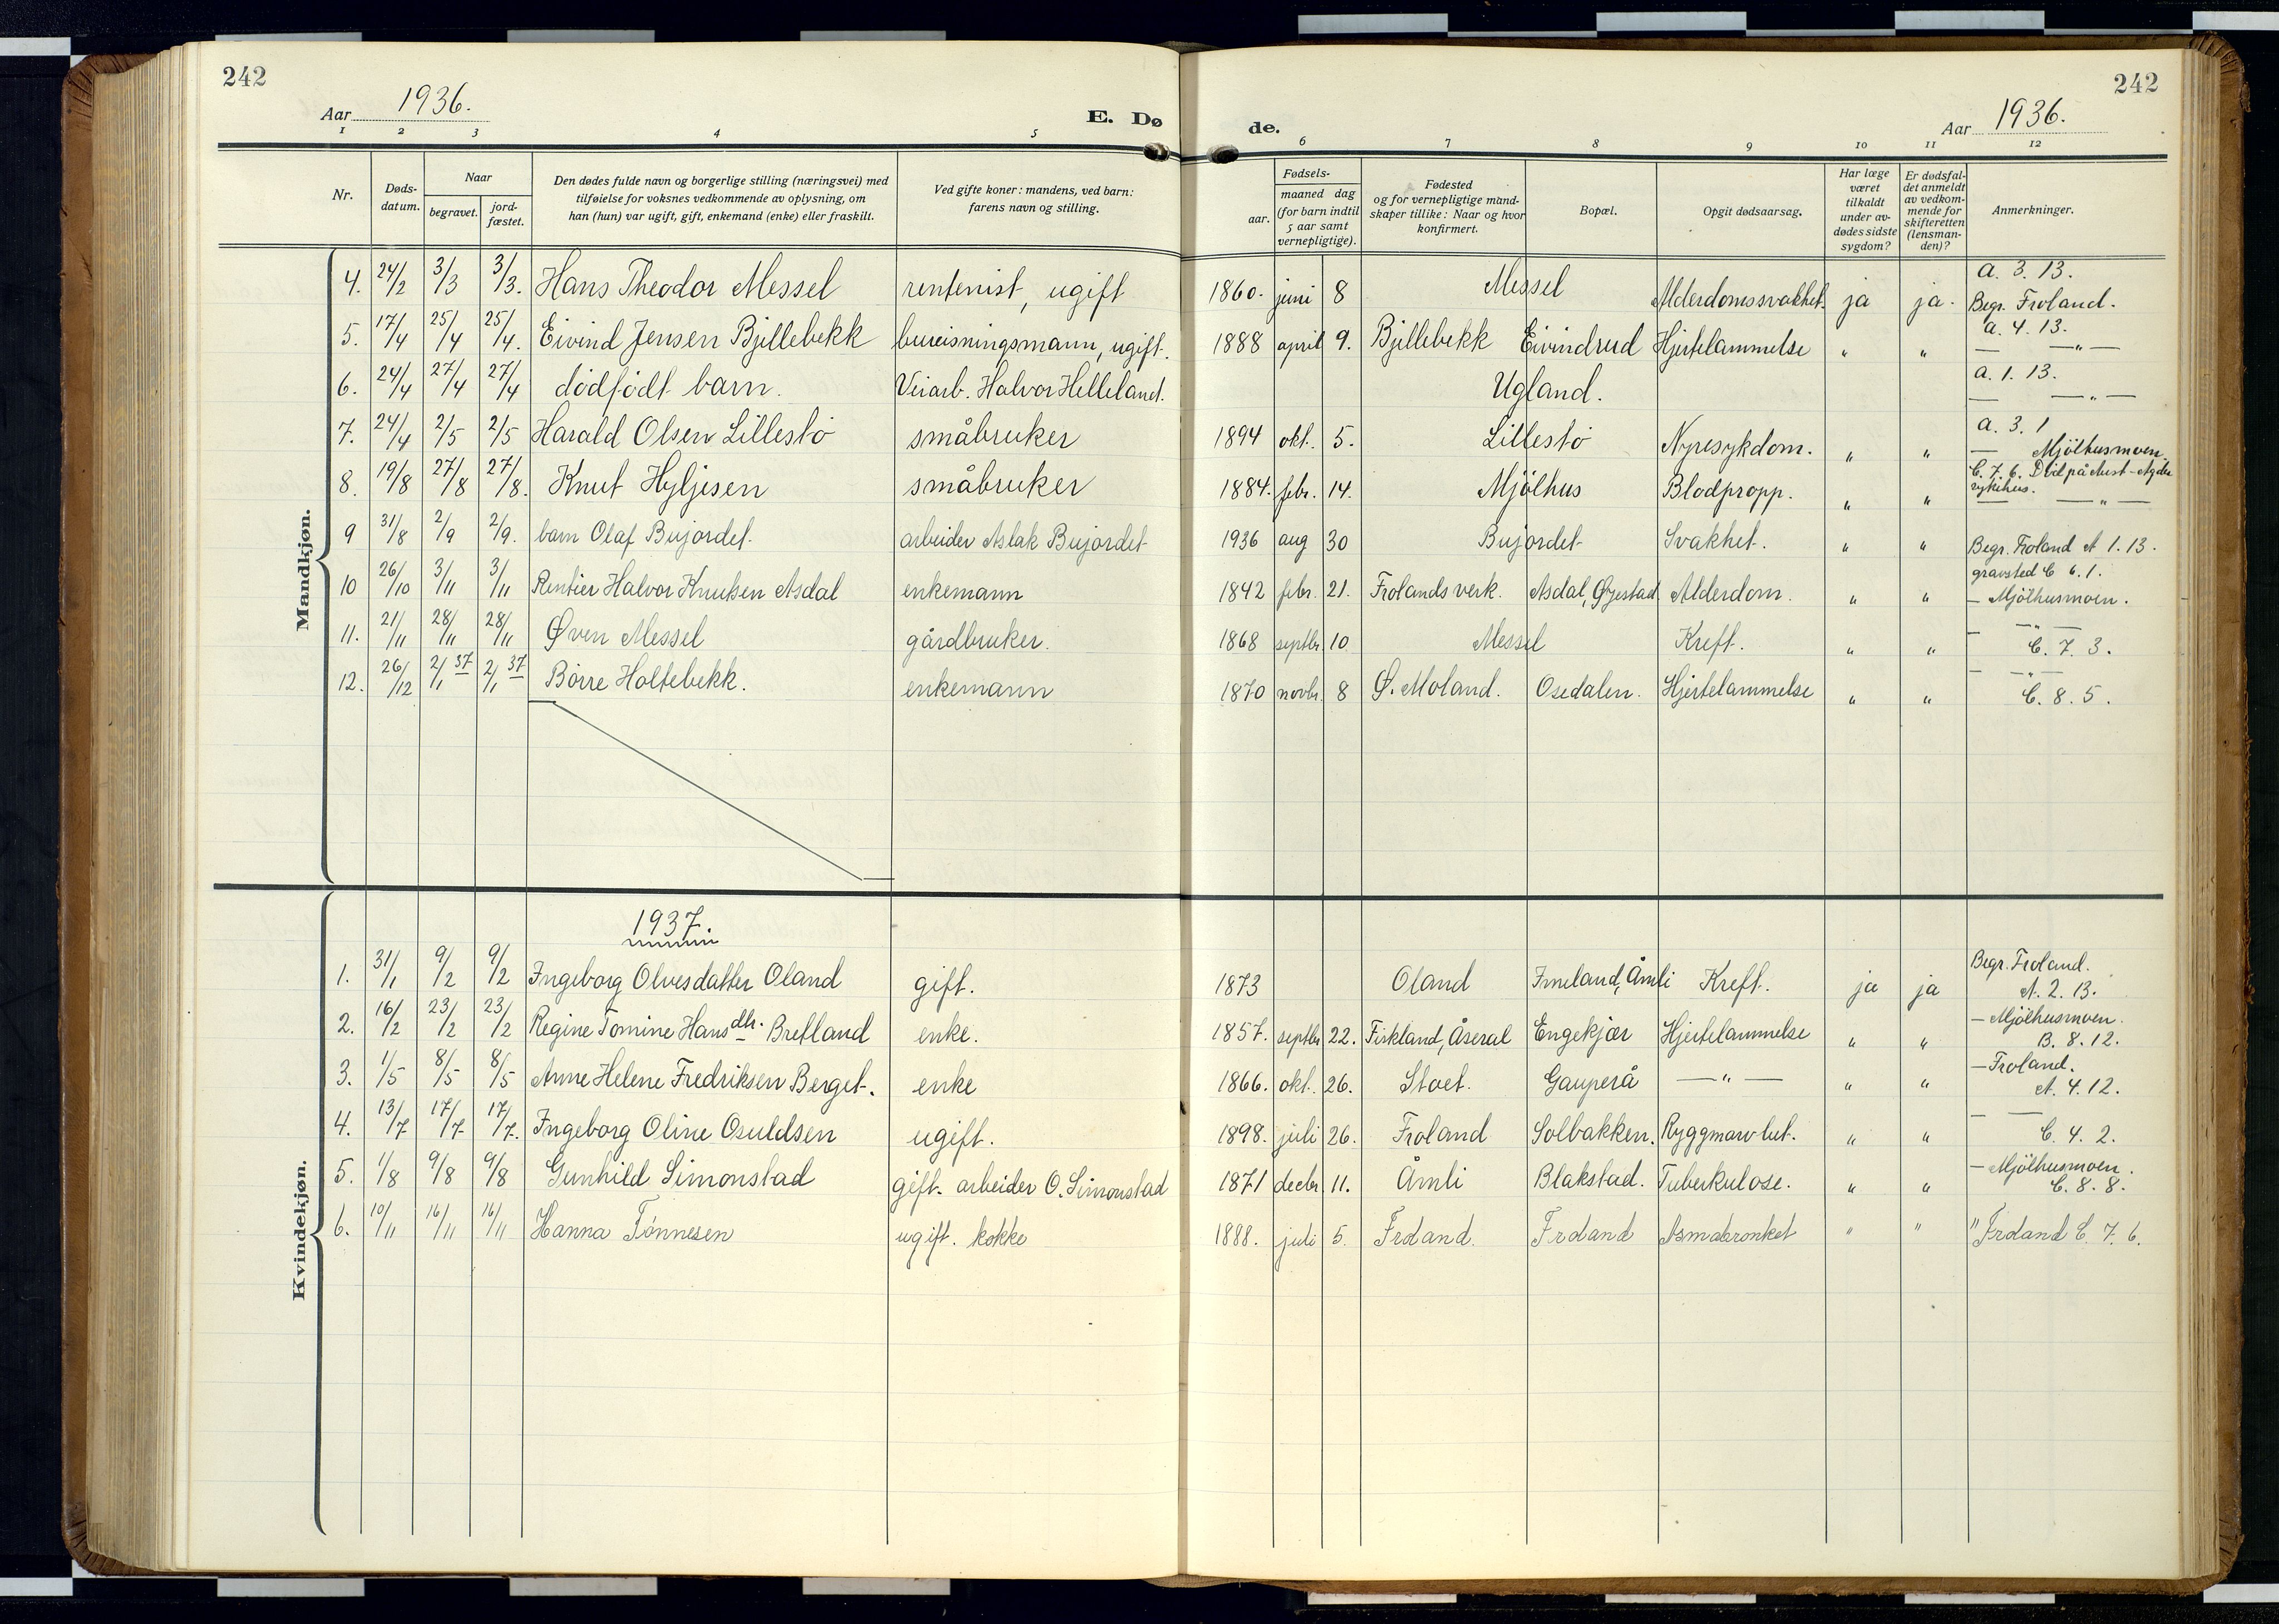 242
Aar 1936.
E. Dø
de.
Aar 1936.
242
1 2 3 4 5 6 7 8 9 10 11 12
Nr.
Døds-datum.
Naar
begravet.
jord-fæstet.
Den dødes fulde navn og borgerlige stilling (næringsvei) med
tilføielse for voksnes vedkommende av oplysning, om
han (hun) var ugift, gift, enkemand (enke) eller fraskilt.
Ved gifte koner: mandens, ved barn:
farens navn og stilling.
Fødsels-
aar.
maaned dag
(for barn indtil
5 aar samt
vernepligtige).
Fødested
og for vernepligtige mand-
skaper tillike: Naar og hvor
konfirmert.
Bopæl.
Opgit dødsaarsag.
Har læge
været
tilkaldt
under av-
dødes sidste
sygdom?
Er dødsfal-
det anmeldt
av vedkom-
mende for
skifteretten
(lensman-
den)?
Anmerkninger.
Mandkjøn.
4. 24/2 3/3 3/3. Hans Theodor Messel rentenist, ugift 1860. juni 8 Messel Alderdomssvakhet. ja ja. a. 3. 13. Begr. Froland.
5. 17/4 25/4 25/4. Eivind Jensen Bjellebekk bureisningsmann, ugift. 1888 april 9. Bjellebekk Eivindrud Hjertelammelse " " a. 4. 13. — —"—
6. 24/4 27/4 27/4 dødfødt barn. Veiarb. Halvor Helleland. Ugland. a. 1. 13. — —"—
7. 24/4 2/5 2/5 Harald Olsen Lillestø småbruker 1894 okt. 5. Lillestø Nyresykdom. " " a. 3. 1 — Mjölhusmoen
8. 19/8 27/8 27/8. Knut Hyljesen småbruker 1884. febr. 14. Mjölhus Blodpropp. " " C. 7. 6. Död på Aust-Agder sykehus. — —"—
9 31/8 2/9 2/9. barn Olaf Bujordet. arbeider Aslak Bujordet 1936 aug 30 Bujordet Svakhet. " " Begr. Froland A 1. 13.
10 26/10 3/11 3/11 Rentier Halvor Knutsen Asdal enkemann 1842 febr. 21. Frolands verk. Asdal, Øyestad Alderdom. " " gravsted C 6. 1. — Mjölhusmoen.
11. 21/11 28/11 28/11 Øven Messel gårdbruker. 1868 septbr. 10 Messel Kreft. " " — —"— C. 7. 3.
12. 26/12 2/1 37 2/1 37 Börre Holtebekk. enkemann 1870 novbr. 8 Ø. Moland. Osedalen. Hjertelammelse " " — —"— C. 8. 5.
Kvindekjøn.
1937.
1. 31/1 9/2 9/2 Ingeborg Olvesdatter Oland gift. 1873 Oland Imeland, Åmli Kreft. ja ja Begr. Froland. A. 2. 13.
2. 16/2 23/2 23/2 Regine Tomine Hansdtr. Brefland enke. 1857. septbr 22. Fiskland, Åseral Engekjær Hjertelammelse " " — Mjölhusmoen. B. 8. 12.
3. 1/5 8/5 8/5 Anne Helene Fredriksen Berget. enke 1866. okt. 26. Stoet. Gauperå —"— " " — Froland. A. 4. 12.
4. 13/7 17/7 17/7. Ingeborg Oline Osuldsen ugift. 1898. juli 26. Froland Solbakken. Ryggmarvbet. " " — — C. 4. 2.
5. 1/8 9/8 9/8 Gunhild Simonstad gift. arbeider O. Simonstad 1871 decbr. 11. Åmli Blakstad. Tuberkulose. " " — Mjölhusmoen. C. 8. 8.
6. 10/11 16/11 16/11 Hanna Tønnesen ugift. kokke 1888. juli 5. Froland. Froland Asmabronket " " " Froland C. 7. 6.